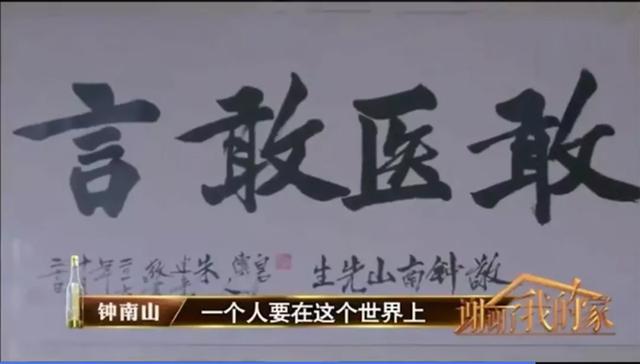 敢医敢言
敬钟南山先生
钟南山
一个人要在这个世界上
谢谢了我的家